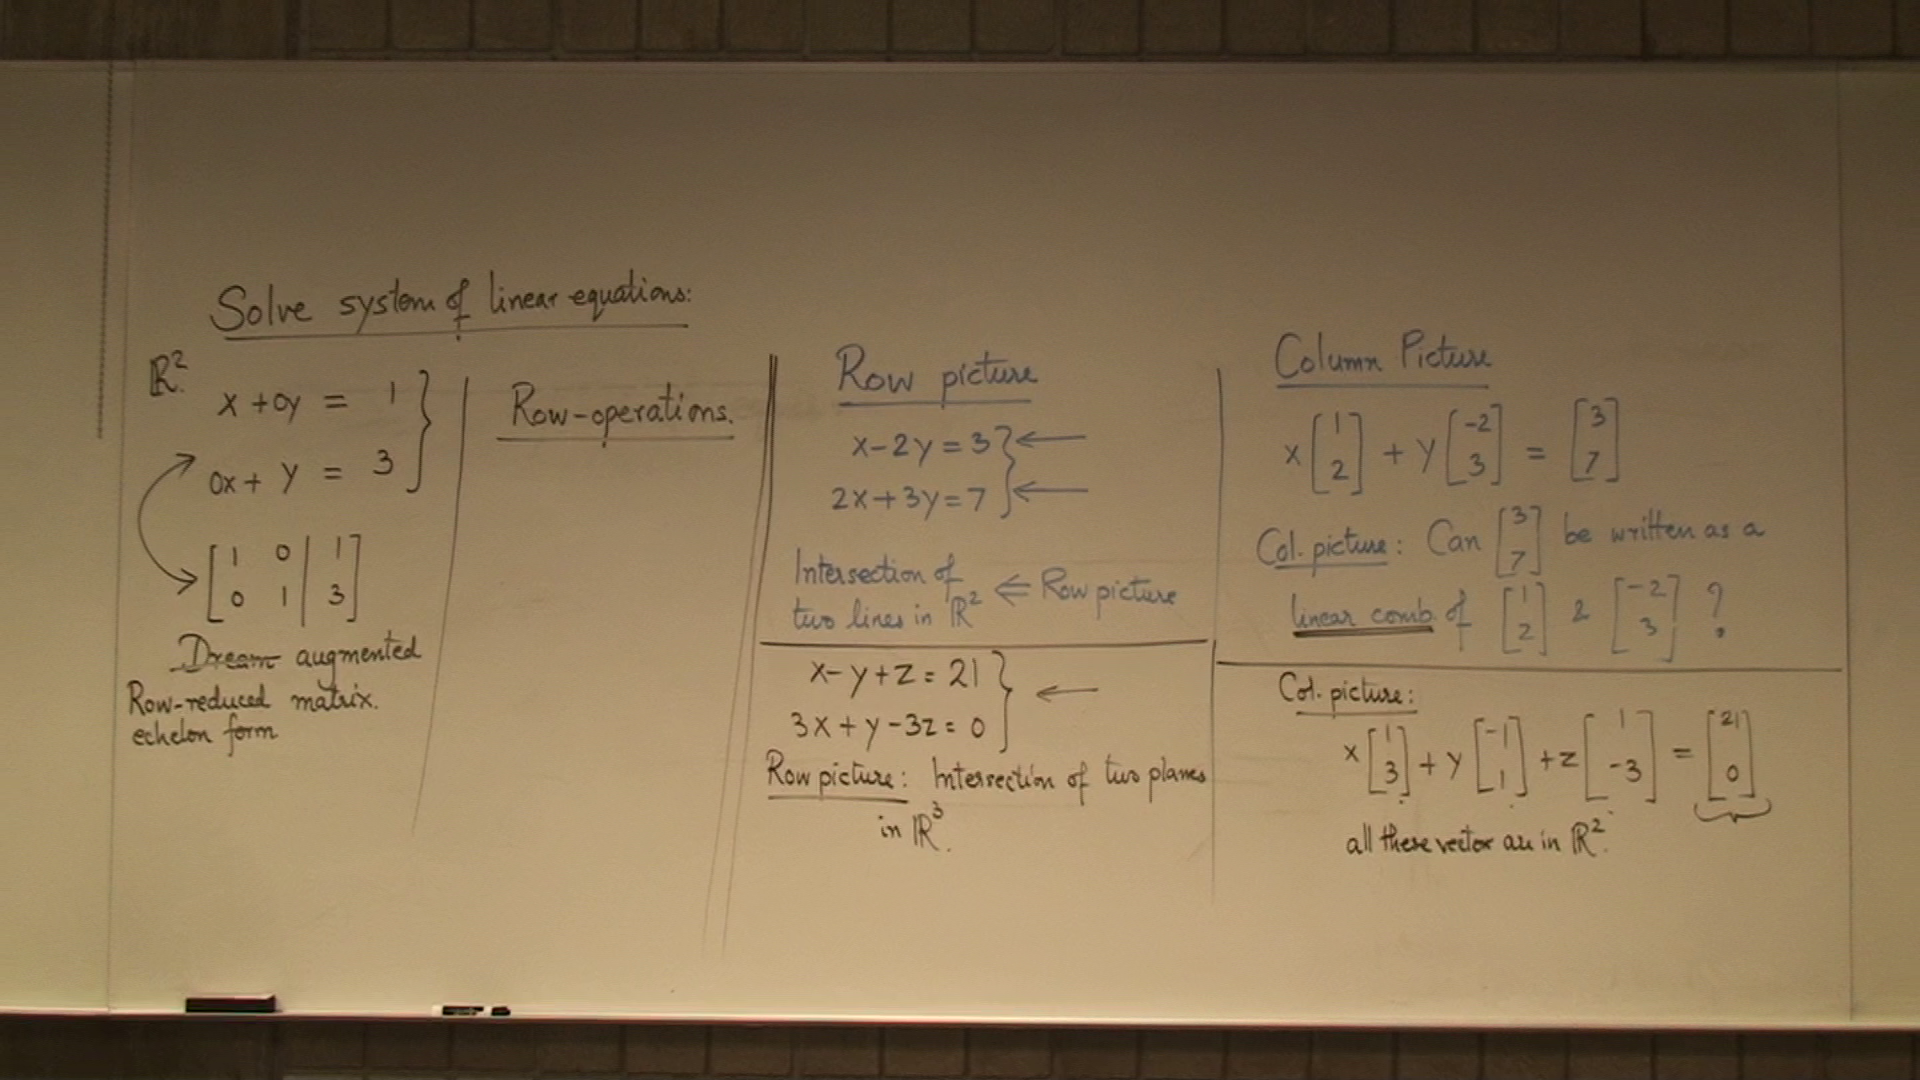 Solve system of linear equations:
ℝ².
x + 0y = 1
0x + y = 3
[1 0 | 1]
[0 1 | 3]
Dream augmented
Row-reduced matrix.
echelon form
Row-operations.
Row picture
x - 2y = 3
2x + 3y = 7
Intersection of
two lines in ℝ² ⇐ Row picture
x - y + z = 21
3x + y - 3z = 0
Row picture: Intersection of two planes
in ℝ³.
Column Picture
x [1 2] + y [-2 3] = [3 7]
Col. picture: Can [3 7] be written as a
linear comb. of [1 2] & [-2 3] ?
Col. picture:
x [1 3] + y [-1 1] + z [1 -3] = [21 0]
all these vector are in ℝ².